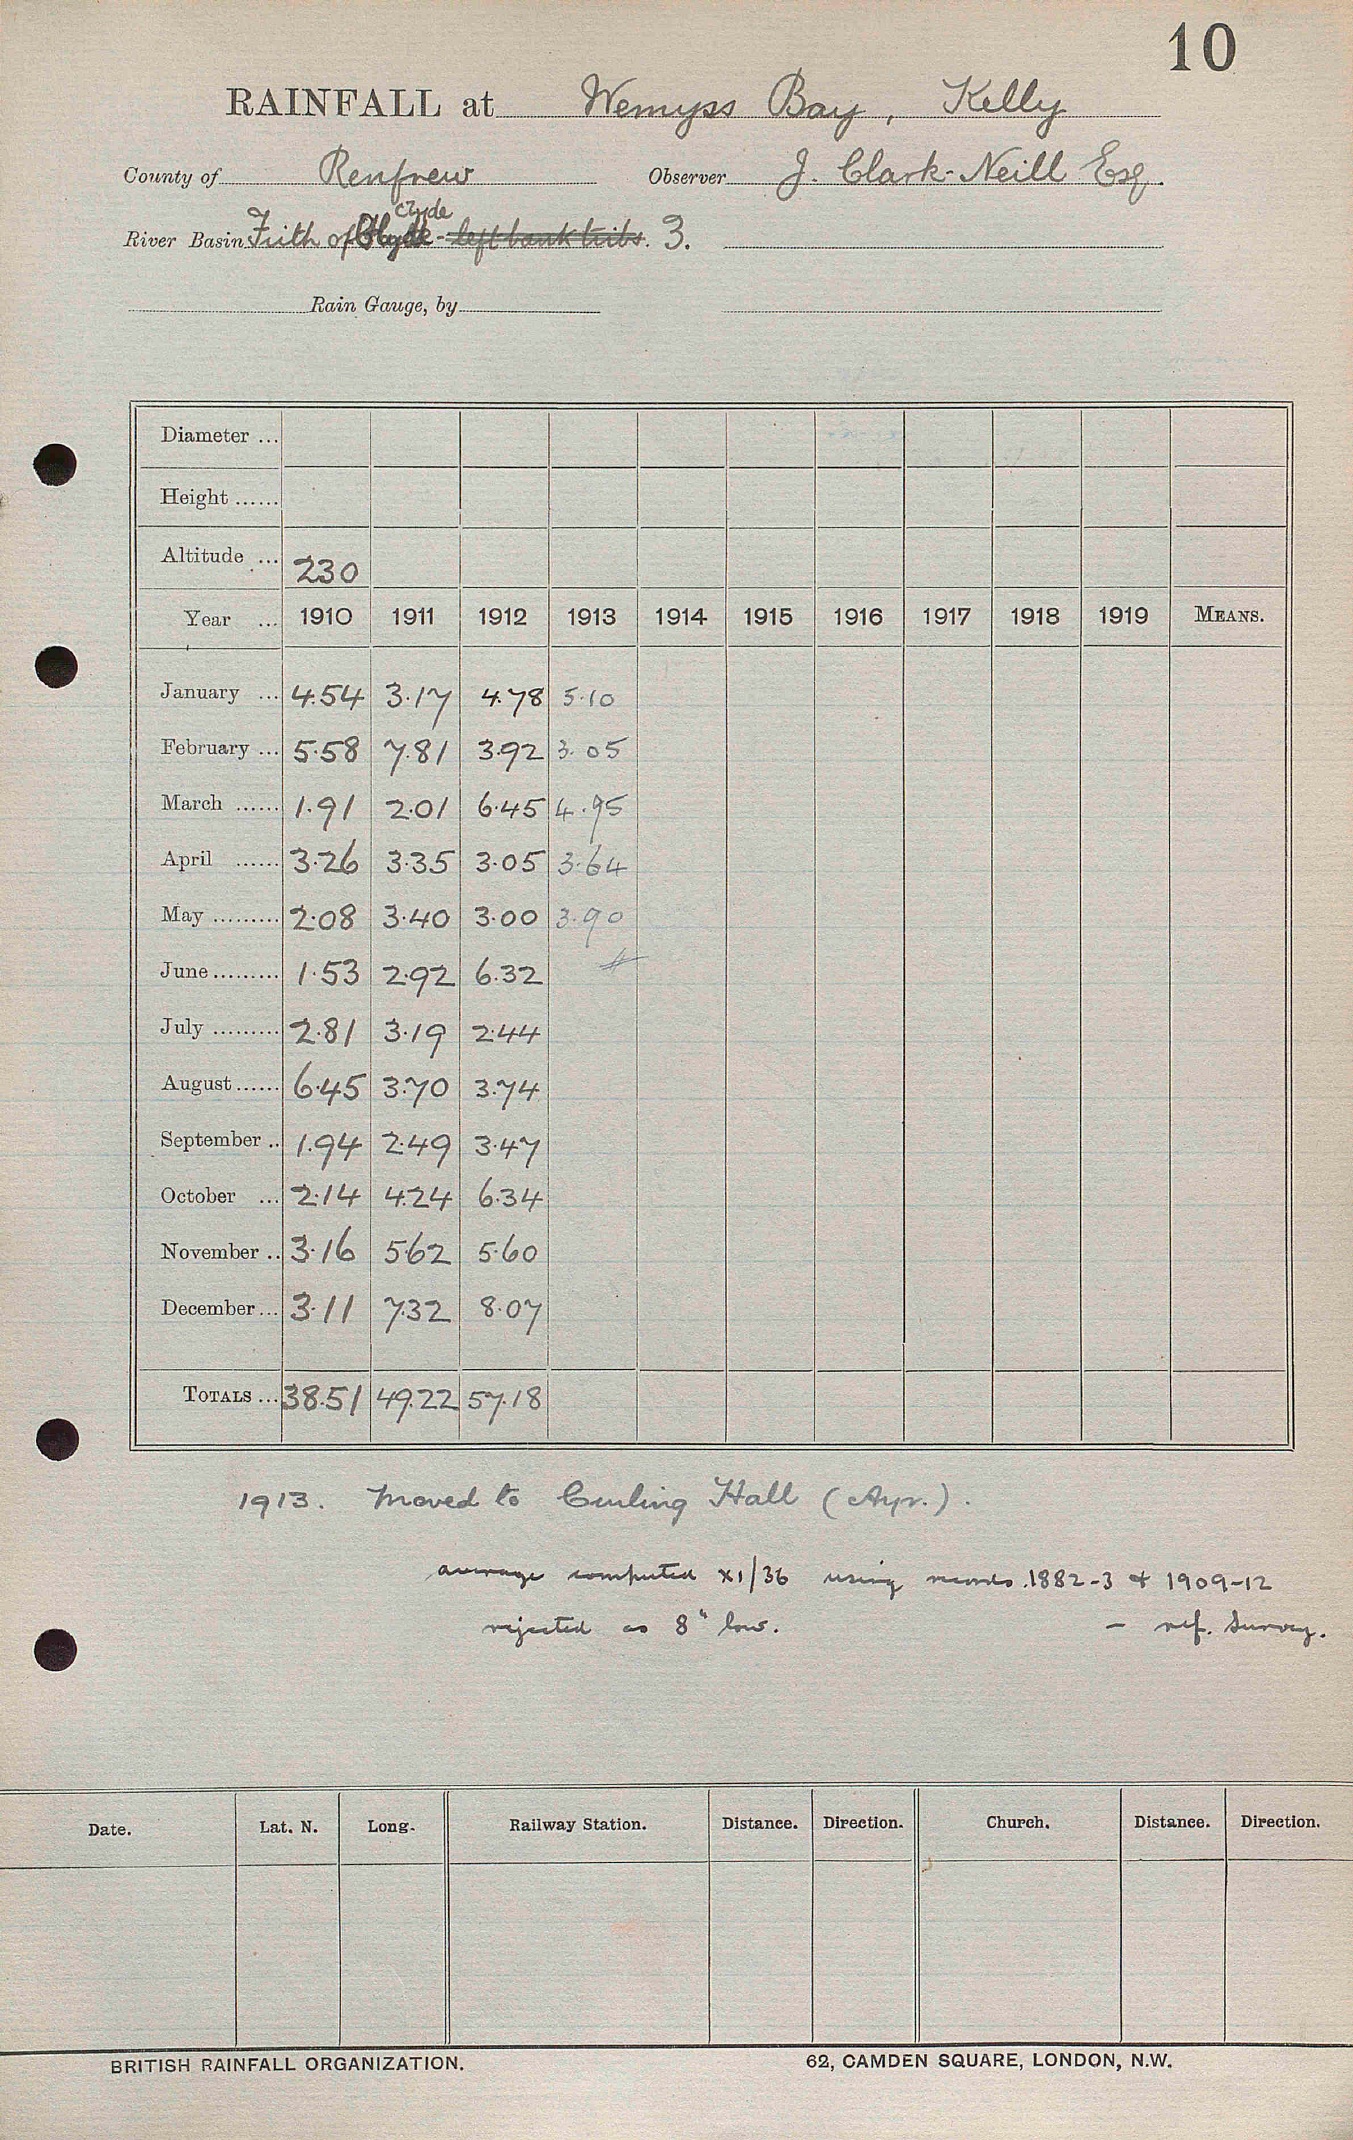 10
RAINFALL at Wemyss Bay, Kelly
County of Renfrew Observer J. Clark-Neill Esq.
Clyde
River Basin Frith of Clyde - left bank tribs. 3.
Rain Gauge, by
Diameter ...
Height ......
Altitude ... 230
Year ... 1910 1911 1912 1913 1914 1915 1916 1917 1918 1919 MEANS.
January ... 4.54 3.17 4.78 5.10
February ... 5.58 7.81 3.92 3.05
March ...... 1.91 2.01 6.45 4.95
April ...... 3.26 3.35 3.05 3.64
May ......... 2.08 3.40 3.00 3.90
June ......... 1.53 2.92 6.32
July ......... 2.81 3.19 2.44
August ...... 6.45 3.70 3.74
September .. 1.94 2.49 3.47
October ... 2.14 4.24 6.34
November .. 3.16 5.62 5.60
December ... 3.11 7.32 8.07
TOTALS ... 38.51 49.22 57.18
1913. Moved to Curling Hall (Ayr.).
average computed x1/36 using records 1882-3 & 1909-12
rejected as 8" low. - ref. Survey.
Date. Lat. N. Long. Railway Station. Distance. Direction. Church. Distance. Direction.
BRITISH RAINFALL ORGANIZATION. 62, CAMDEN SQUARE, LONDON, N.W.